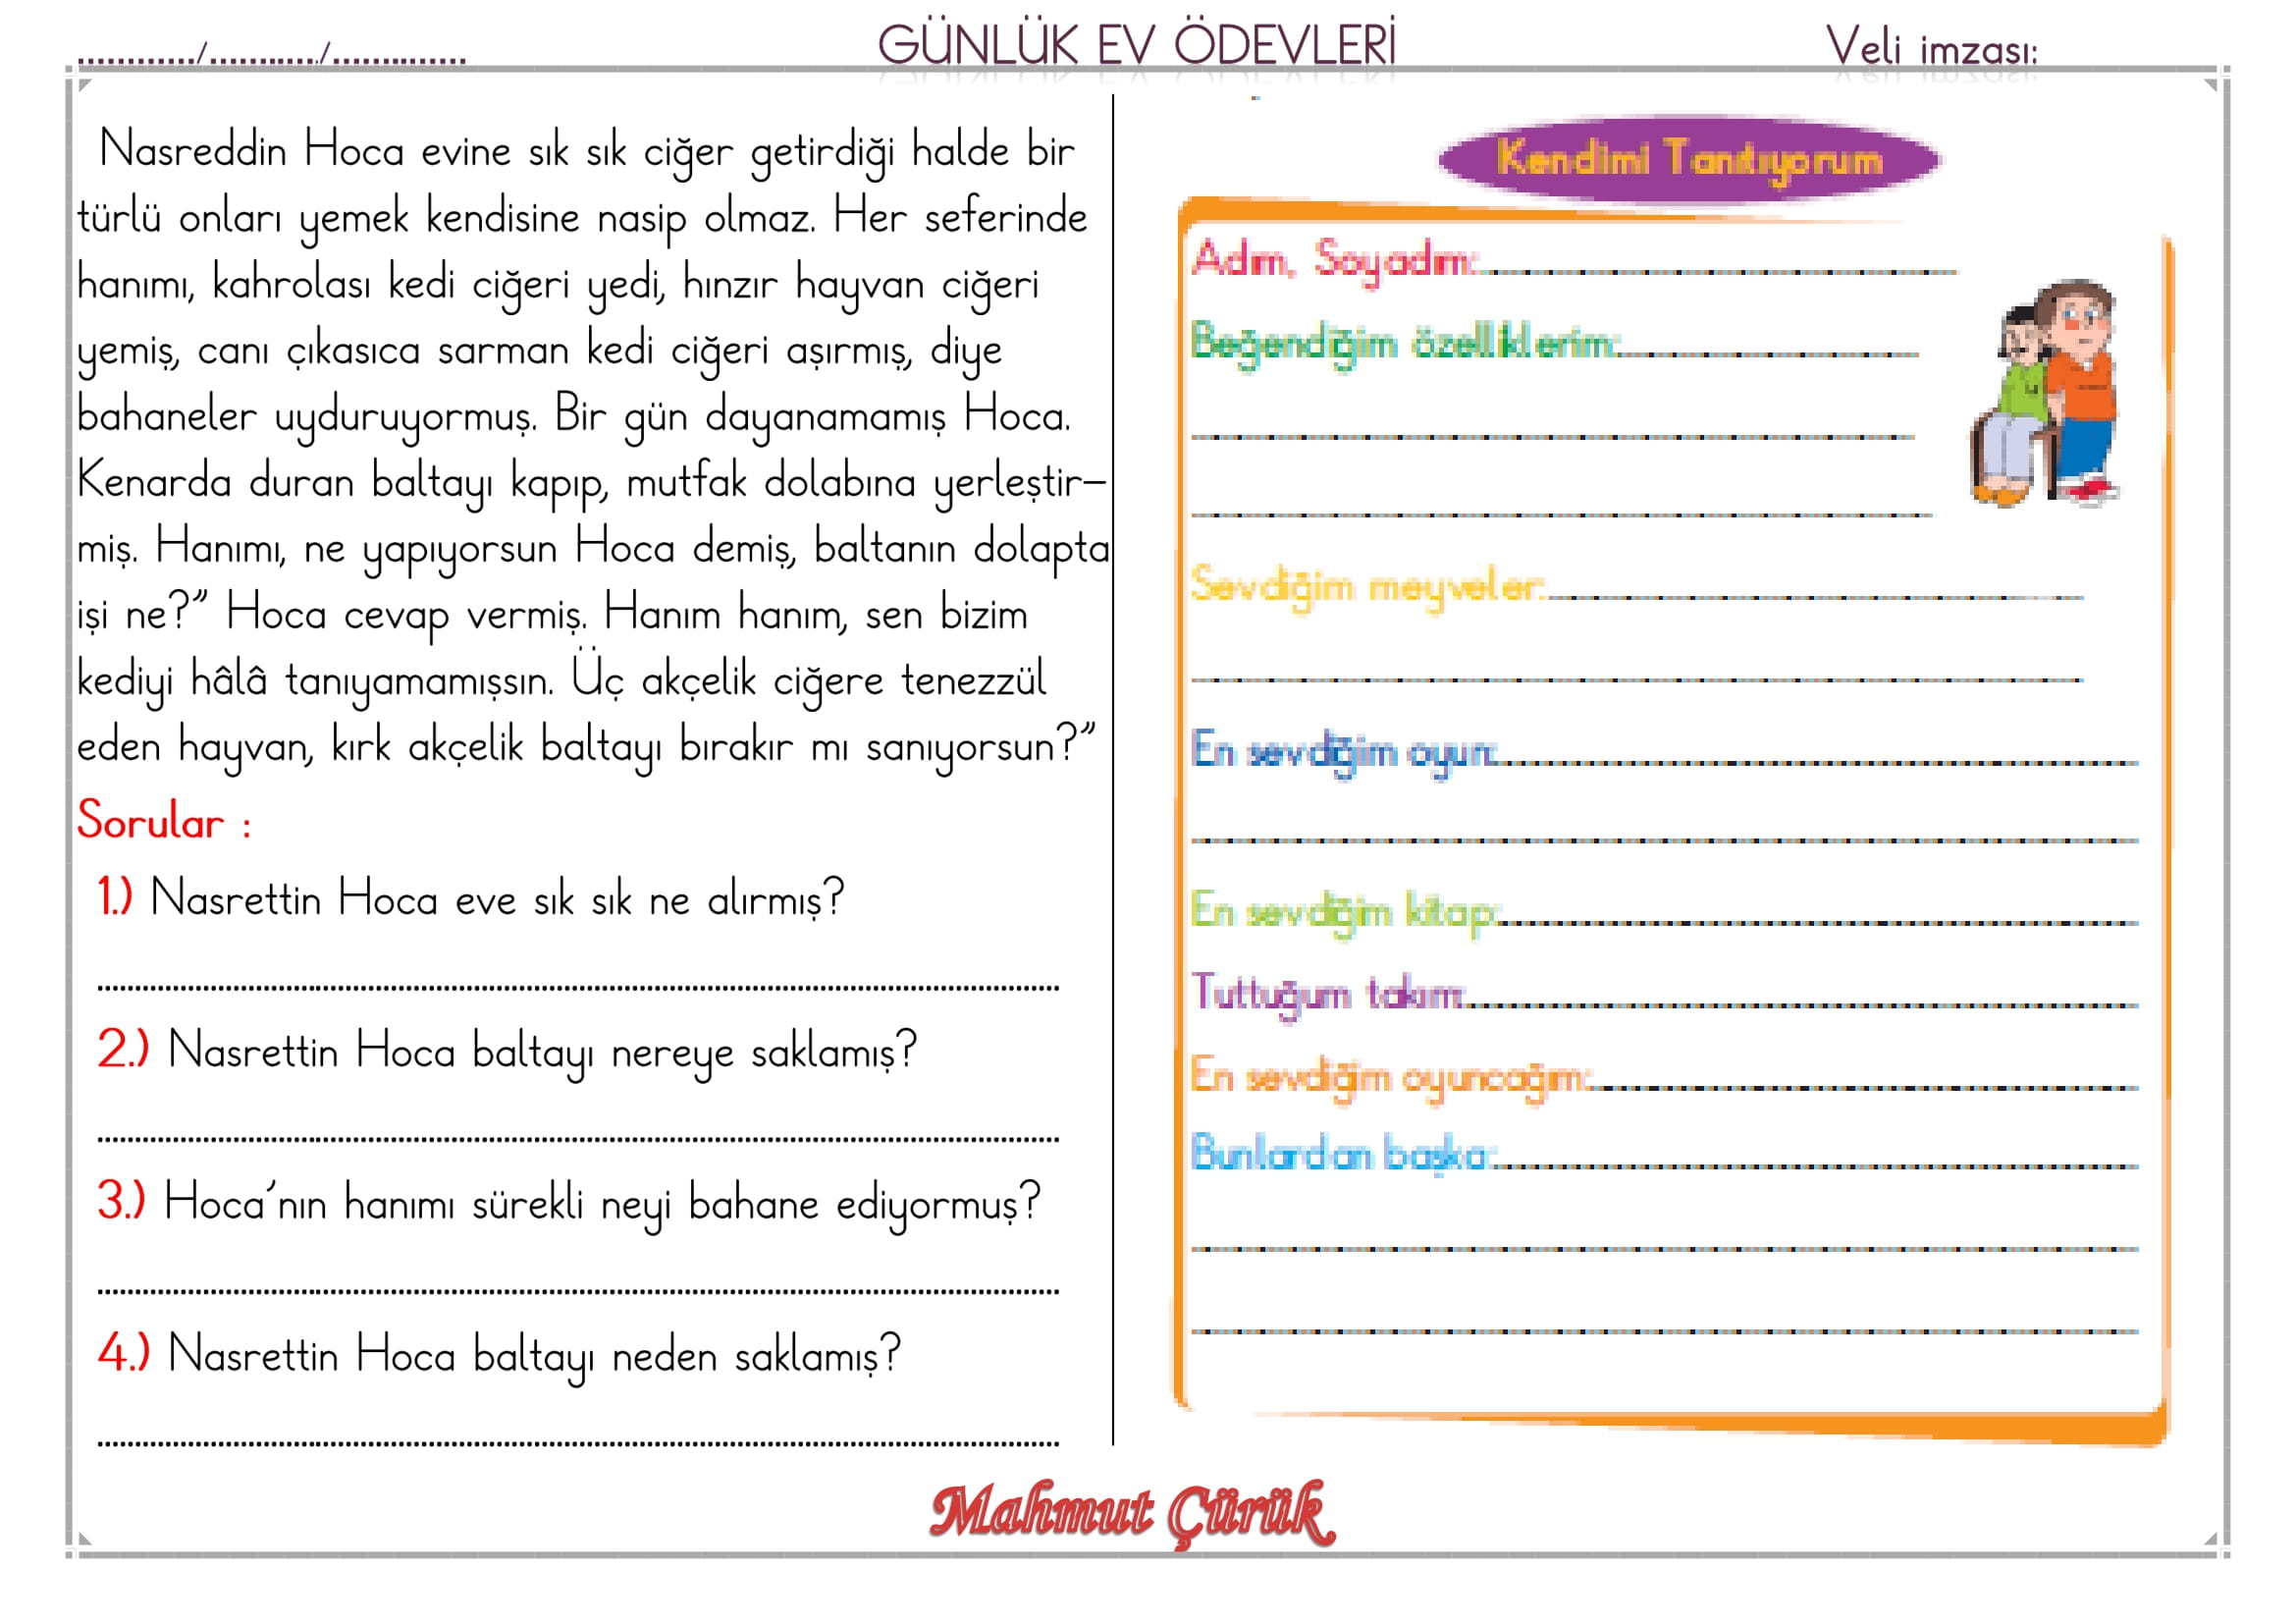 ............/.........../..............
GÜNLÜK EV ÖDEVLERİ
Veli imzası:
Nasreddin Hoca evine sık sık ciğer getirdiği halde bir
türlü onları yemek kendisine nasip olmaz. Her seferinde
hanımı, kahrolası kedi ciğeri yedi, hınzır hayvan ciğeri
yemiş, canı çıkasıca sarman kedi ciğeri aşırmış, diye
bahaneler uyduruyormuş. Bir gün dayanamamış Hoca.
Kenarda duran baltayı kapıp, mutfak dolabına yerleştir-
miş. Hanımı, ne yapıyorsun Hoca demiş, baltanın dolapta
işi ne?” Hoca cevap vermiş. Hanım hanım, sen bizim
kediyi hâlâ tanıyamamışsın. Üç akçelik ciğere tenezzül
eden hayvan, kırk akçelik baltayı bırakır mı sanıyorsun?”
Sorular :
1.) Nasrettin Hoca eve sık sık ne alırmış?
2.) Nasrettin Hoca baltayı nereye saklamış?
3.) Hoca’nın hanımı sürekli neyi bahane ediyormuş?
4.) Nasrettin Hoca baltayı neden saklamış?
Kendimi Tanıtıyorum
Adım, Soyadım:
Beğendiğim özelliklerim:
Sevdiğim meyveler:
En sevdiğim oyun:
En sevdiğim kitap:
Tuttuğum takım:
En sevdiğim oyuncağım:
Bunlardan başka:
Mahmut Çürük